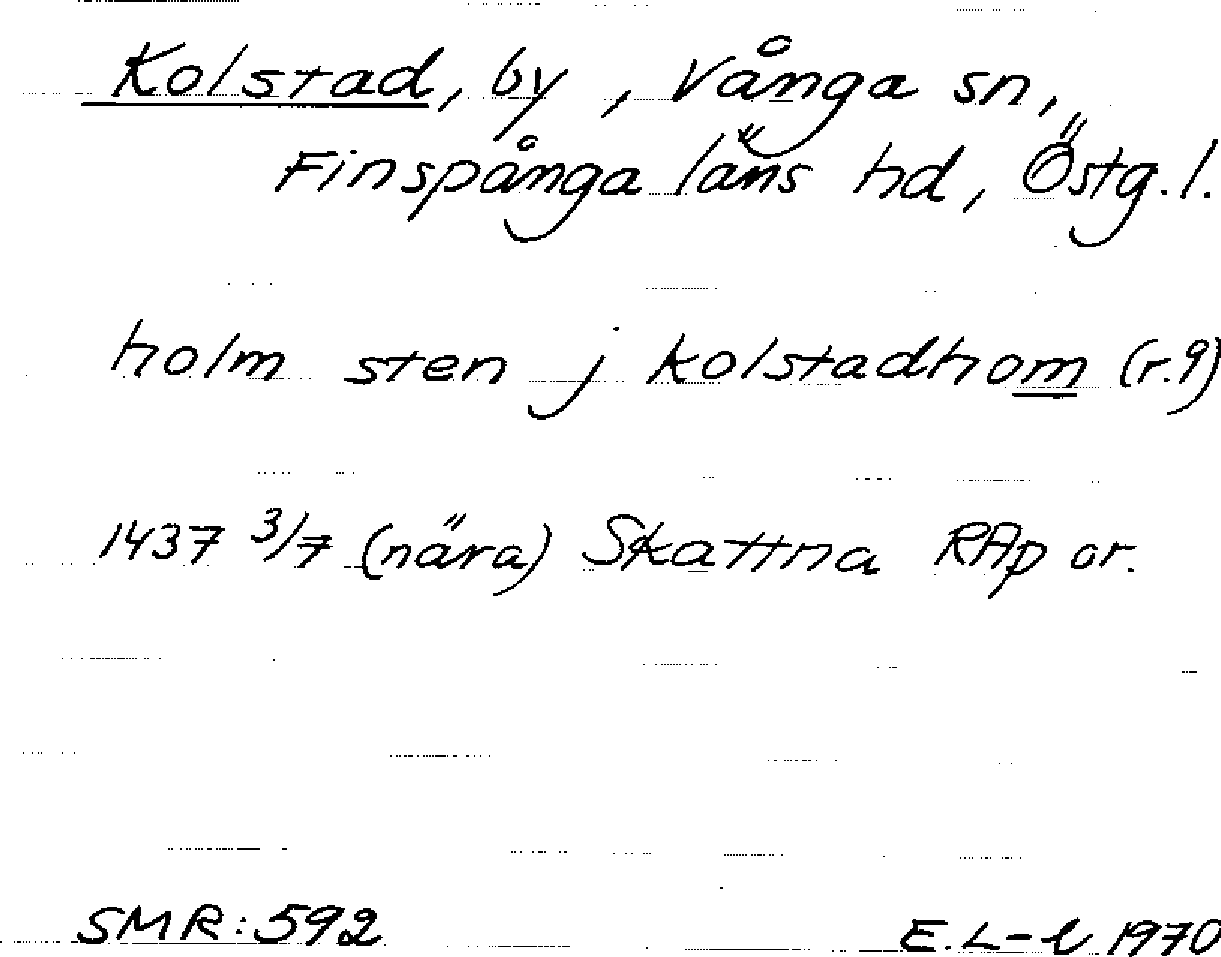 Kolstad, by, Vånga sn,
Finspånga läns hd, Östg.l.
holm sten j kolstadhom (r.9)
1437 3/7 (nära) Skattna RAp or.
SMR: 592
E.L-l 1970